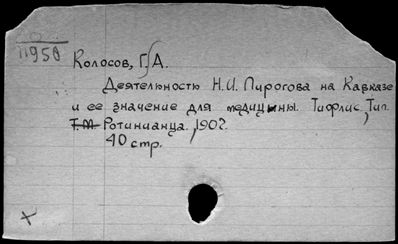 11950
Колосов, Г. А.
Деятельность Н.И. Пирогова на Кавказе
и ее значение для медицины. Тифлис, Тип.
Т.М. Ротинианца, 1907.
40 стр.